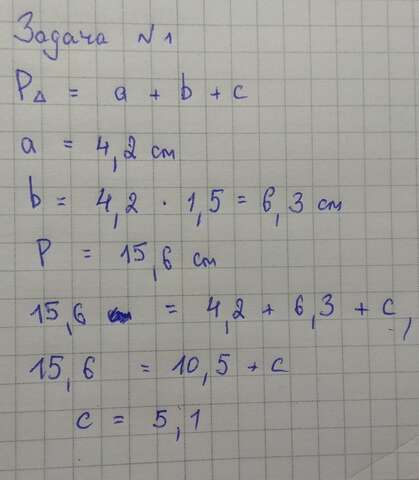 Задача N1
P△ = a + b + c
a = 4,2 cm
b = 4,2 · 1,5 = 6,3 cm
P = 15,6 cm
15,6 = 4,2 + 6,3 + c,
15,6 = 10,5 + c
c = 5,1